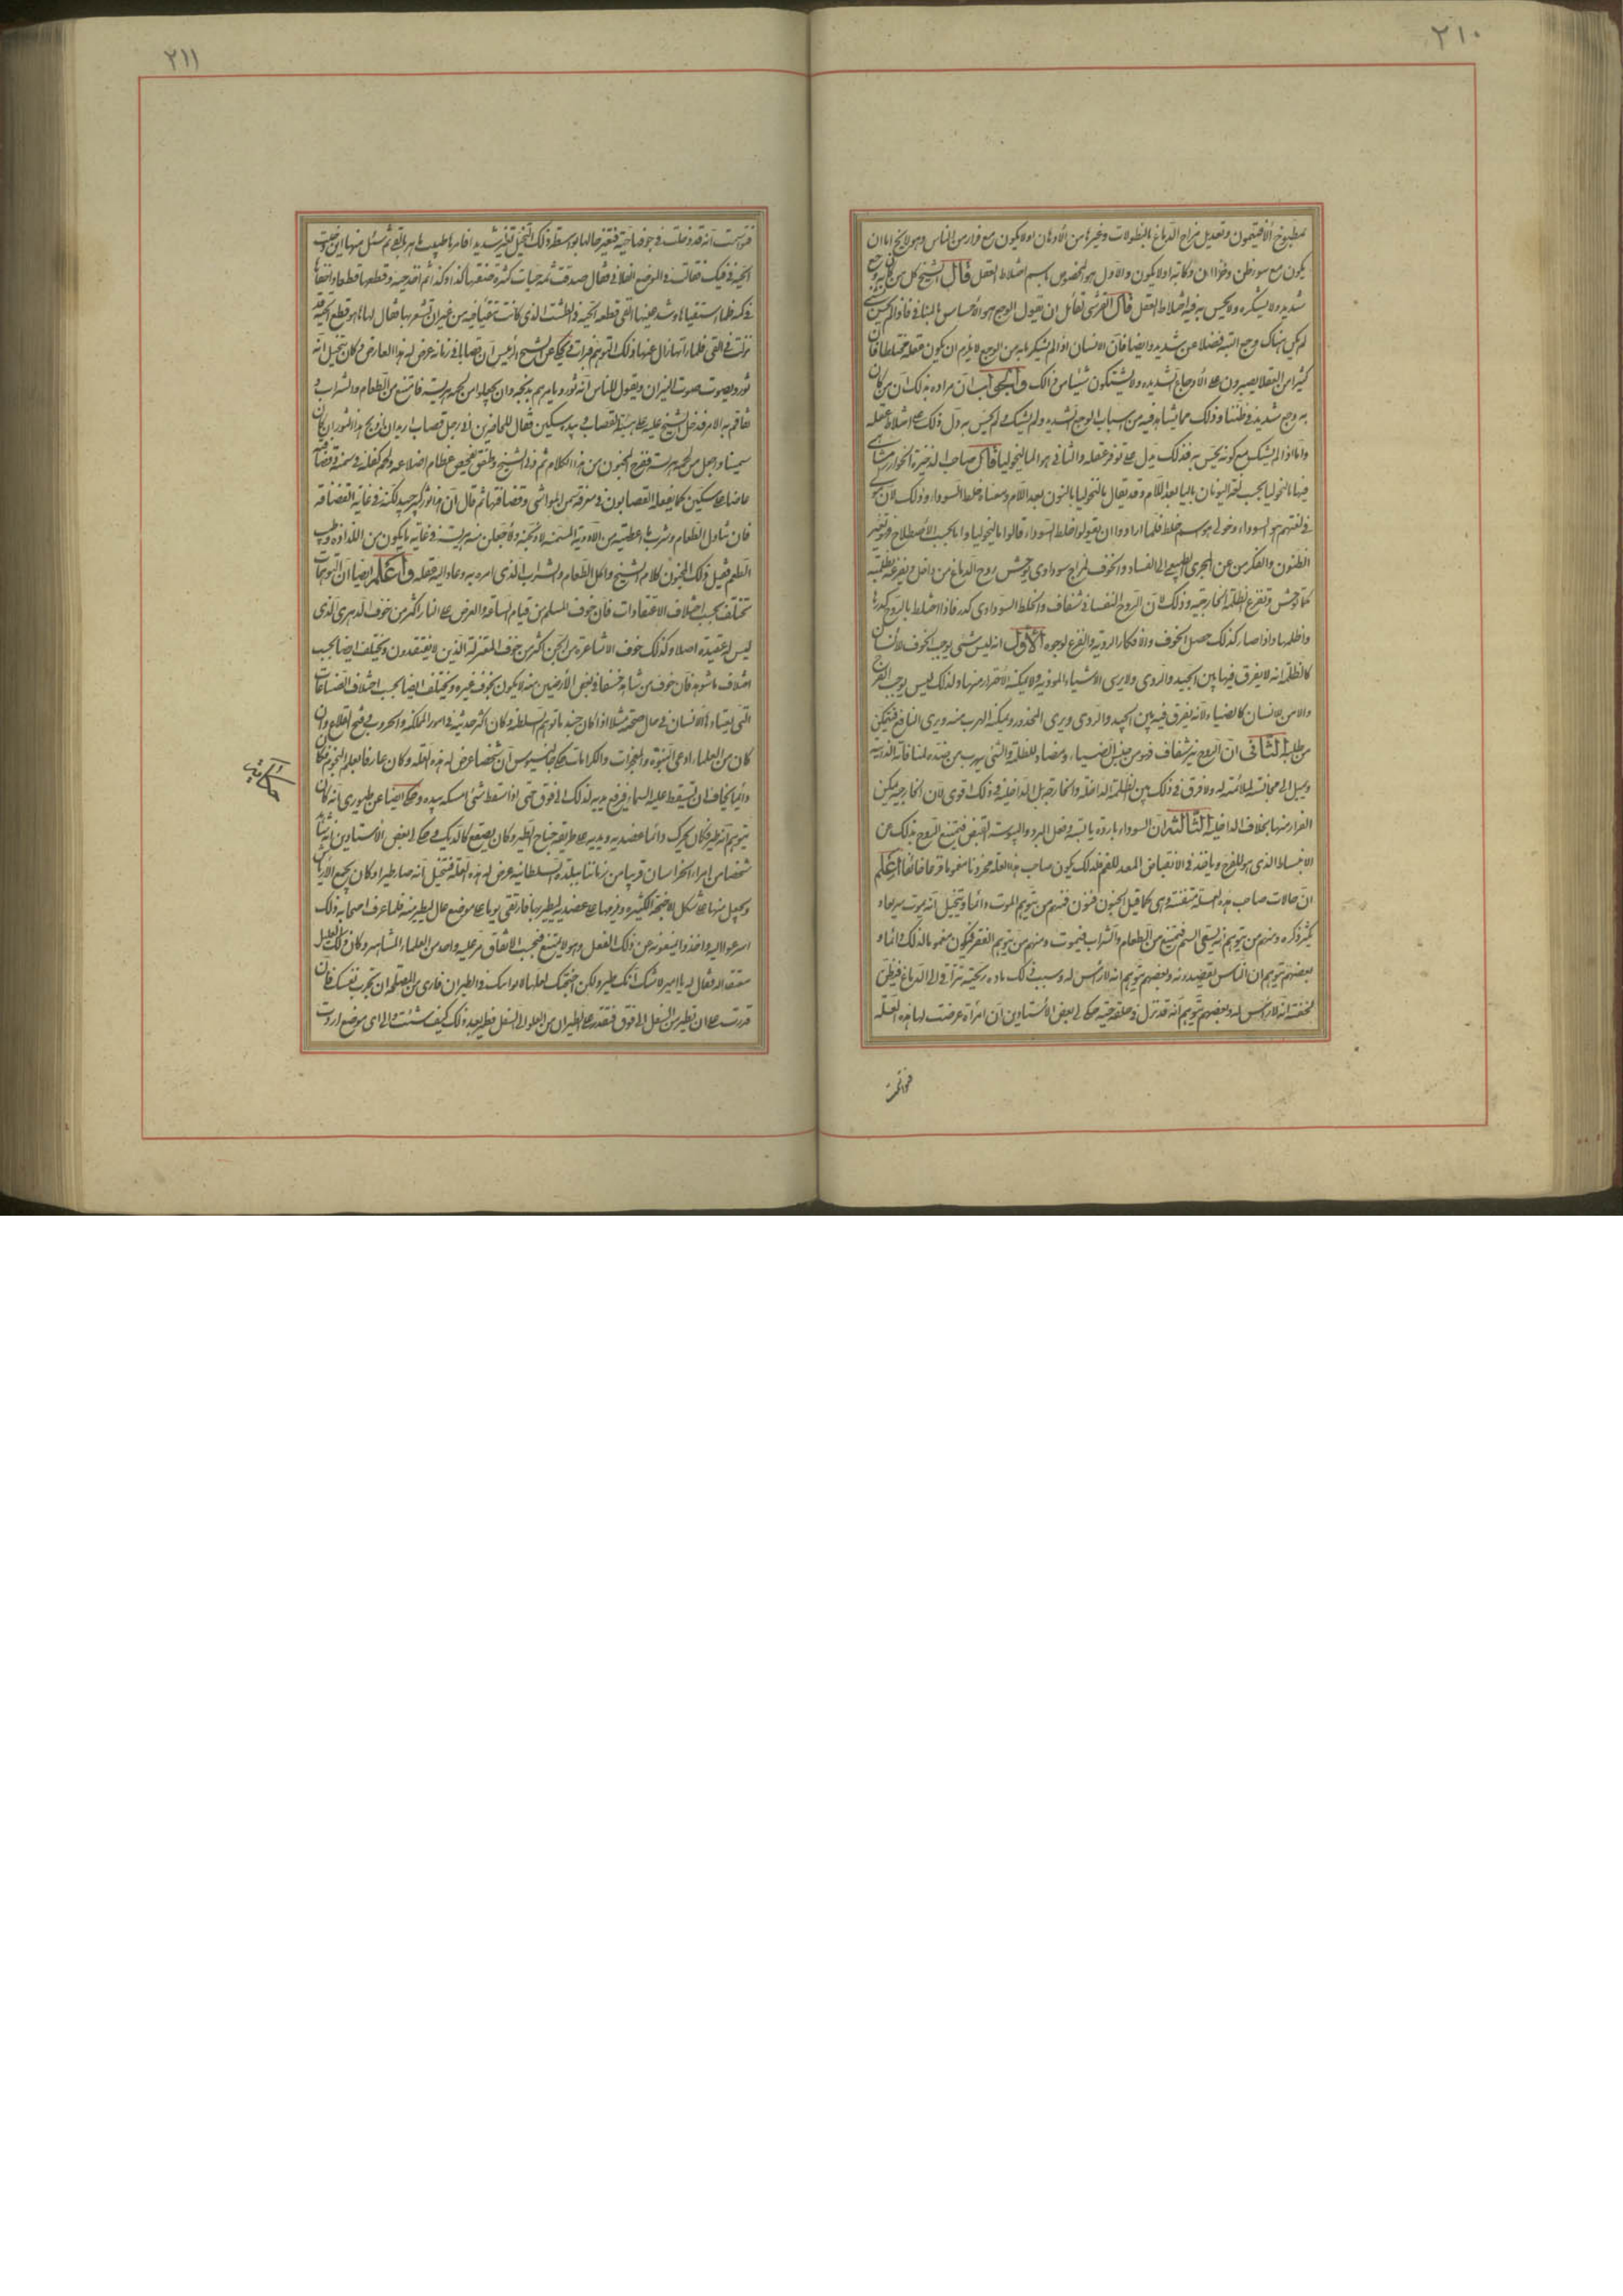 ٢١٠
بمطبوخ الأفتيمون وتعديل مزاج الدماغ بالنطولات وغيرها من الأدهان او لا يكون مع فرار من الناس وهو لا يخ اما ان
يكون مع سوء ظن و او لا يكون والأول هو المخصوص باسم اختلاط العقل قال الشيخ كل من كان به وجع
شديد ولا يشكره ولا يحس به فبه اختلاط العقل قال القرشي لقائل ان يقول الوجع هو الأحساس بالمنافي فاذا لم يحس
لم يكن هناك وجع البتة فضلا عن شديد وايضا فان الانسان اذا لم يشك ما به من الوجع لا يلزم ان يكون عقله مختلطا فان
كثيرا من العقلاء يصبرون على الأوجاع الشديدة ولا يشتكون شيئا من ذلك والجواب ان مراده بذلك ان من كان
به وجع شديد في ظننا وذلك مما يشاهد فيه من اسباب الوجع الشديد ولم يشك ولم يحس به دل ذلك على اختلاط عقله
واما اذا لم يشك مع كونه يحس به فذلك يدل على توفر عقله والثاني هو الماليخوليا قال صاحب الذخيرة الخوارزمشاهي
فيها مالنخوليا بحسب لغة اليونان بالياء بعد اللام وقد يقال مالنخوليا بالنون بعد اللام ومعناه خلط السوداء وذلك لان
في لغتهم هو السوداء وخولي هو اسم خلط فلما ارادوا ان يقولوا خلط السوداء قالوا ماليخوليا واما بحسب الأصطلاح فهو تغير
الظنون والفكر من عن المجرى الطبيعي الى الفساد والخوف لمزاج سوداوي يوحش روح الدماغ من داخل ويفزعه بظلمته
كما توحش وتفزع الظلمة الخارجية وذلك لان الروح النفساني شفاف والخلط السوداوي كدر فاذا اختلط بالروح كدرها
واظلمها واذا صار كذلك حصل الخوف والافكار الردية والفزع لوجوه الأول انه ليس شيء يوجب الخوف للأنسان
كالظلمة لانه لا يفرق فيها بين الجيد والردي ولا يرى الاشياء الموذية ولا يمكنه الاحتراز منها وكذلك ليس يوجب الفرح
والامن للانسان كالضياء لانه يفرق فيه بين الجيد والردي ويرى المحذور ويمكنه الهرب منه ويرى النافع فيتمكن
من طلبه الثاني ان الروح نير شفاف فهو من جنس الضياء ومضاد للظلمة والشيء يهرب من ضده لمنافاته
ويميل الى مجانسه لملائمته له ولا فرق في ذلك بين الظلمة الداخلة والخارجة بل الداخلية في ذلك اقوى لان الخارجية يمكن
الفرار منها بخلاف الداخلية الثالث ان السوداء باردة يابسة وفعل البرد واليبوسة القبض فيمنع الروح بذلك عن
الانبساط الذي هو للفرح وياخذ في الانقباض المعد للغم فلذلك يكون صاحب هذه العلة محزونا مغموما خائفا اعلم
ان حالات صاحب هذه العلة متفننة وهي كما قيل الجنون فنون فمنهم من يتوهم الموت دائما ويتخيل انه يموت سريعا و
يكثر ذكره ومنهم من يتوهم انه يسقى السم فيمتنع من الطعام والشراب فيموت ومنهم من يتوهم الفقر فيكون مغموما لذلك دائما و
بعضهم يتوهم ان الناس يقصدونه وبعضهم يتوهم انه لا رأس له وسبب ذلك مادة ريحية تتراقى الى الدماغ فيظن
لخفته انه لا رأس له وبعضهم يتوهم انه قد نزل في حلقه حية حكى لي بعض الأستادين ان امرأة عرضت لها هذه العلة
فتوهمت
٢١١
فتوهمت انه قد دخلت في جوفها حية فتغير حالها بواسطة ذلك التخيل تغير شديد فامرها طبيب ماهر بالقيء ثم سئل منها اين دخلت
الحية في فيك فقالت في الموضع الفلاني فقال صدقت ثمه حيات كثيرة فنقتلها كذا وكذا ثم اخذ حية وقطعها قطعا واخفاها
في كمه فلما استقيأها وشد عينها القى قطعة الحية في الطشت الذي كانت تتقيأ فيه من غير ان تشعر بها فقال لها ها هو قطع الحية قد
نزلت في القيء فلما راتها زال عنها ذلك التوهم فبرات ويحكى عن الشيخ الرئيس ان قصابا في زمانه عرض له هذا العارض فكان يتخيل انه
ثور ويصوت صوت الثيران ويقول للناس انه ثور ويامرهم بذبحه وان يجعلوا من لحمه هريسة فامتنع من الطعام والشراب و
تفاقم به الامر فدخل الشيخ عليه على هيئة القصاب في يده سكين فقال للحاضرين انا رجل قصاب اريد ان اذبح هذا الثور ان كان
سمينا واجعل من لحمه هريسة ففرح المجنون من هذا الكلام ثم دنى الشيخ وطفق يتفحص عظام اضلاعه ولحم كفله
فان تناول الطعام وشرب ما اعطيته من الأدوية المسمنة لأذبحنه ولأجعلن منه هريسة في غاية ما يكون من اللذاذة وطيب
الطعم فقبل ذلك المجنون كلام الشيخ واكل الطعام والشراب الذي امره به وعاد اليه عقله واعلم ايضا ان التوهمات
تختلف بحسب اختلاف الاعتقادات فان خوف المسلم من قيام الساعة والعرض على النار اكثر من خوف الدهري الذي
ليس له عقيدة اصلا وكذلك خوف الاشاعرة من الجن اكثر من خوف المعتزلة الذين لا يعتقدون ويختلف ايضا بحسب
اختلاف ما شوهد فان خوف من شاهد خسفا في بعض الأرضين منه لا يكون كخوف غيره ويختلف ايضا بحسب اختلاف الصناعات
التي يعتادها الانسان في حال صحته مثلا اذا كان جنديا توهم السلطنة وكان اكثر حديثه في امور المملكة والحروب وفتح القلاع وان
كان من العلماء ادعى النبوة والمعجزات والكرامات حكى جالينوس ان شخصا عرض له هذه العلة وكان عارفا بعلم النجوم فكان
دائما يخاف ان تسقط عليه السماء فيرفع يديه لذلك الى فوق حتى اذا سقط شيء امسكه بيده وحكى ايضا عن طيوري انه كان
يتوهم انه طير فكان يحرك دائما عضديه ويديه على طريقة جناح الطير وكان يصقع كالديك وحكى لي بعض الأستادين انه شاهد
شخصا من امراء الخراسان قريبا من زماننا ببلدة السلطانية عرض له هذه العلة فتخيل انه صار طيرا وكان يجمع الأرياش
ويجعل منها على شكل الاجنحة الكثيرة ويربطها على عضديه ليطير بها فارتقى يوما على موضع عال ليطير منه فلما عرف اصحابه ذلك
اسرعوا اليه واخذوا يمنعونه عن ذلك الفعل وهو لا يمتنع فبحسب الاتفاق مر عليه واحد من العلماء المشاهير وكان ذلك العليل
معتقدا له فقال له يا امير لا شك انك طير ولكن اجنحتك لعلها لا تواسيك في الطيران فارى من المصلحة ان تجرب نفسك فان
قدرت على ان تطير من السفل الى فوق فتقدر على الطيران من العلو الى السفل فطر بعد ذلك كيف شئت والى اي موضع اردت